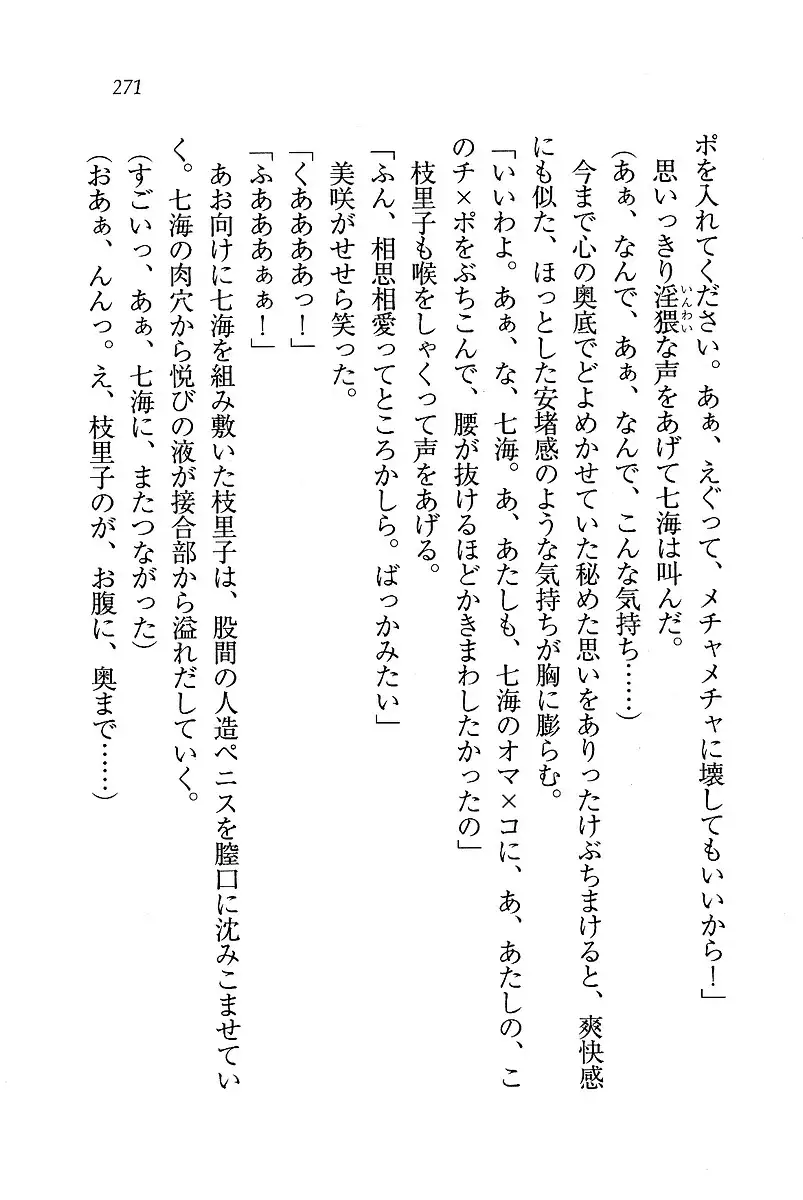 271
ポを入れてください。あぁ、えぐって、メチャメチャに壊してもいいから！」
思いっきり淫猥な声をあげて七海は叫んだ。
いんわい
(あぁ、なんで、あぁ、なんで、こんな気持ち……)
今まで心の奥底でどよめかせていた秘めた思いをありったけぶちまけると、爽快感
にも似た、ほっとした安堵感のような気持ちが胸に膨らむ。
「いいわよ。あぁ、な、七海。あ、あたしも、七海のオマ×コに、あ、あたしの、こ
のチ×ポをぶちこんで、腰が抜けるほどかきまわしたかったの」
枝里子も喉をしゃくって声をあげる。
「ふん、相思相愛ってところかしら。ばっかみたい」
美咲がせせら笑った。
「くああああっ！」
「ふあああぁぁ！」
あお向けに七海を組み敷いた枝里子は、股間の人造ペニスを膣口に沈みこませてい
く。七海の肉穴から悦びの液が接合部から溢れだしていく。
(すごいっ、あぁ、七海に、またつながった)
(おあぁ、んんっ。え、枝里子のが、お腹に、奥まで……)